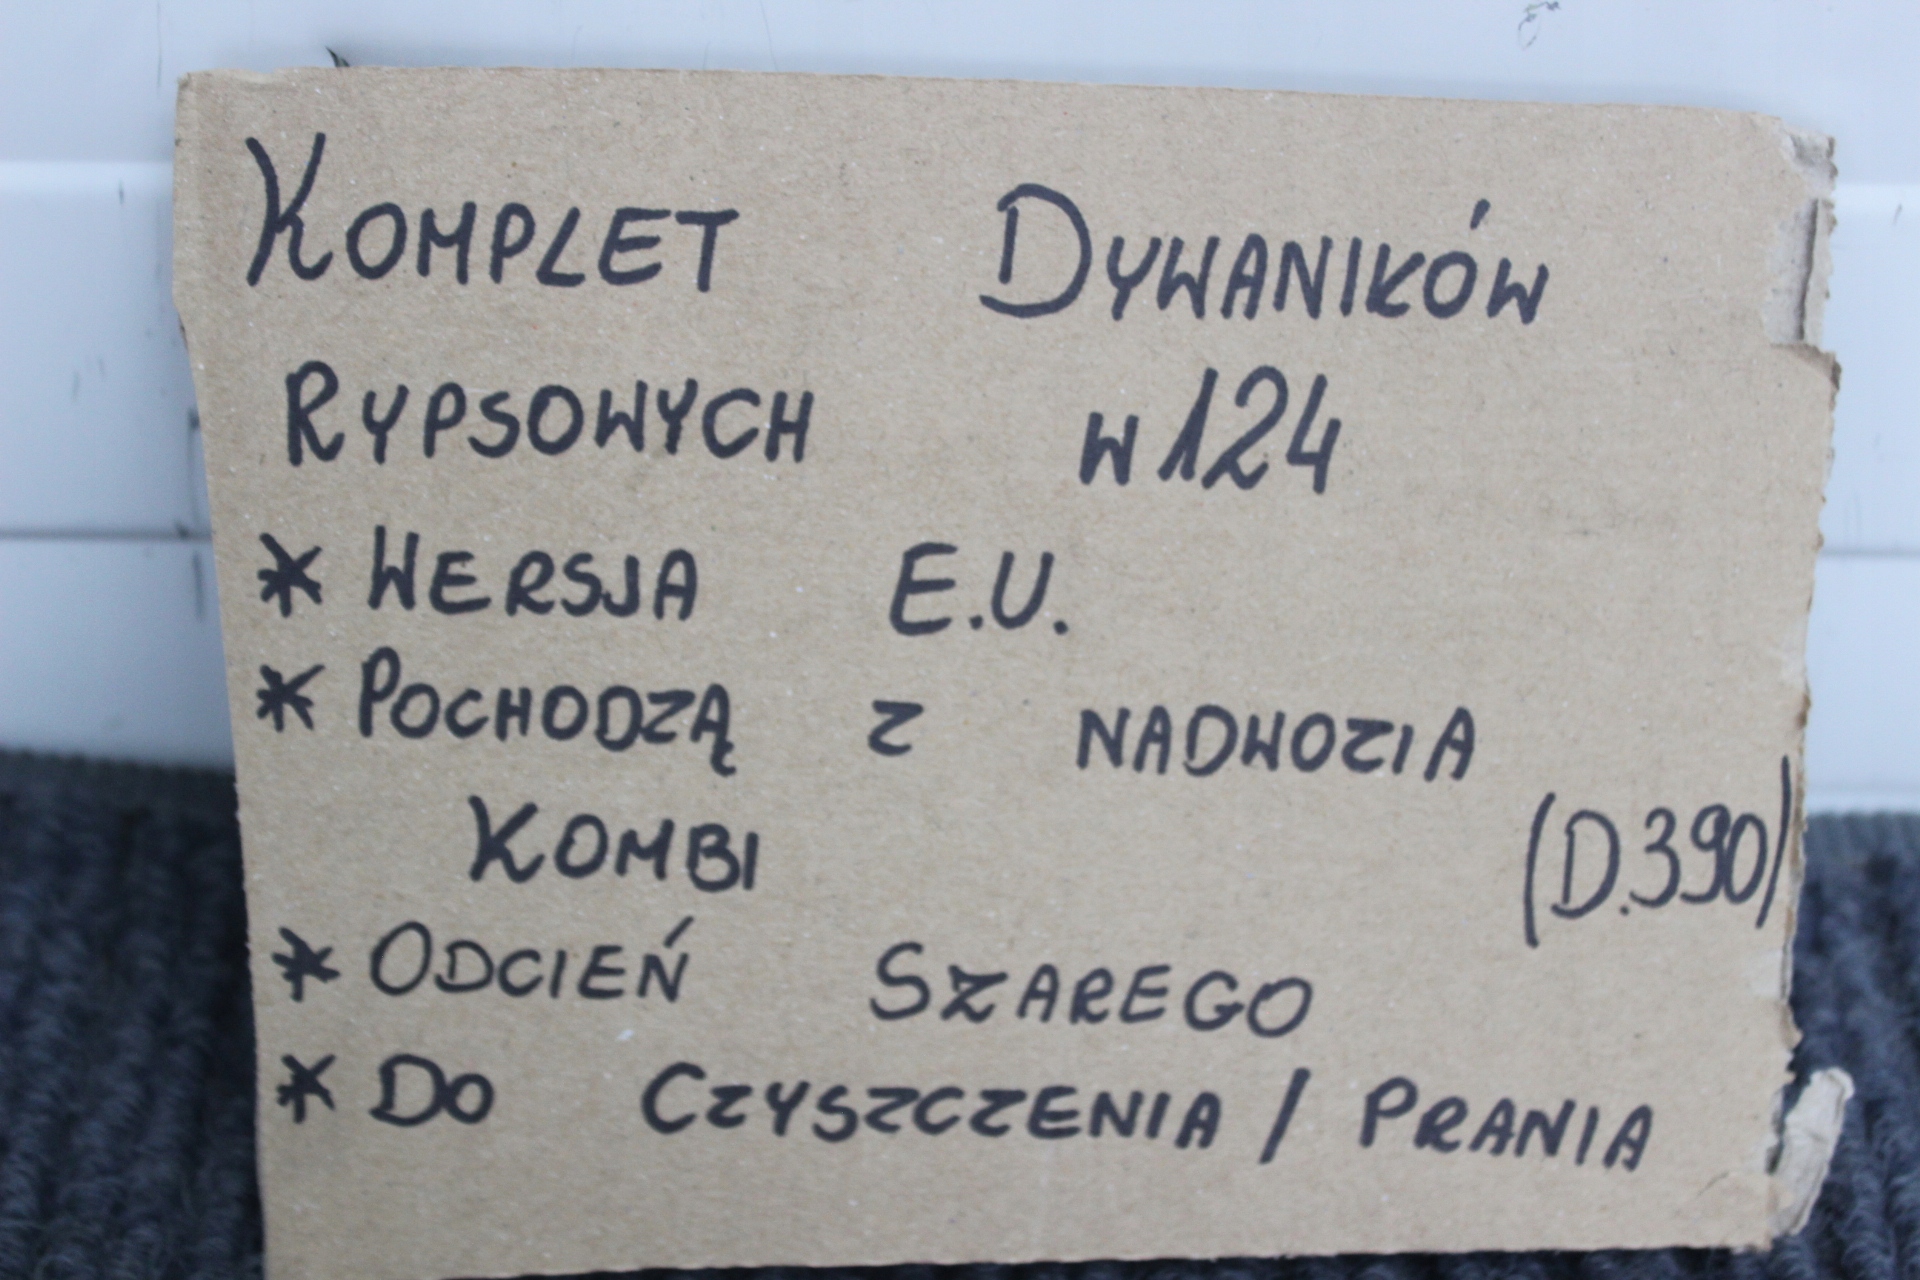 KOMPLET DYWANIKÓW
RYPSOWYCH W124
* WERSJA E.U.
* POCHODZĄ Z NADWOZIA
KOMBI (D.390)
* ODCIEŃ SZAREGO
* DO CZYSZCZENIA / PRANIA